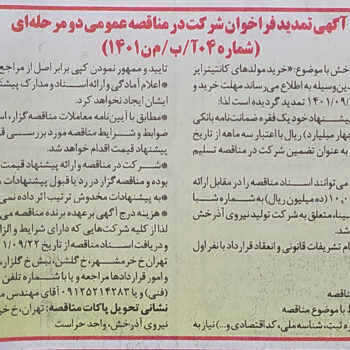 آگهی تمدید فراخوان شرکت در مناقصه عمومی دو مرحله‌ای
(شماره ۰۴آ/ب/م‌ن/۱۴۰۱)
خش با موضوع: «خرید مولدهای کانتینرایز
ین‌وسیله به اطلاع می‌رساند مهلت خرید و
۱۴۰۱/۰۹/ تمدید گردیده است لذا:
پیشنهاد خود یک فقره ضمانت‌نامه بانکی
چهار میلیارد) ریال با اعتبار سه ماهه از تاریخ
به عنوان تضمین شرکت در مناقصه تسلیم
می‌توانند اسناد مناقصه را در مقابل ارائه
۱۰,۰ (ده میلیون) ریال به شماره شبا
سینا، متعلق به شرکت تولید نیروی آذرخش
ام تشریفات قانونی و انعقاد قرارداد با نفر اول
مناقصه
ط با موضوع مناقصه
ره ثبت، شناسه ملی، کد اقتصادی و...) نیاز به
تایید و ممهور نمودن کپی برابر اصل از مراجع
* اعلام آمادگی و ارائه اسناد و مدارک پیشنه
ایشان ایجاد نخواهد کرد.
* مطابق با آیین نامه معاملات مناقصه گزار، اس
ضوابط و شرایط مناقصه مورد بررسی ق
پیشنهاد قیمت اقدام خواهد شد.
* شرکت در مناقصه و ارائه پیشنهاد قیمت
بوده و مناقصه گزار در رد یا قبول پیشنهادات م
* به پیشنهادات مخدوش ترتیب اثر داده نمی
* هزینه درج آگهی بر عهده برنده مناقصه می
لذا از کلیه شرکت‌هایی که دارای شرایط و الزا
و دریافت اسناد مناقصه از تاریخ ۱/۰۹/۲۲
تهران خ خرمشهر، خ گلشن، نبش خ گلزار،
و امور قراردادها مراجعه و یا با شماره تلفن
(فنی) و یا ۰۹۱۲۵۲۱۴۲۸۳ آقای مهندس م
نشانی تحویل پاکات مناقصه: تهران، خ خرم
نیروی آذرخش، واحد حراست